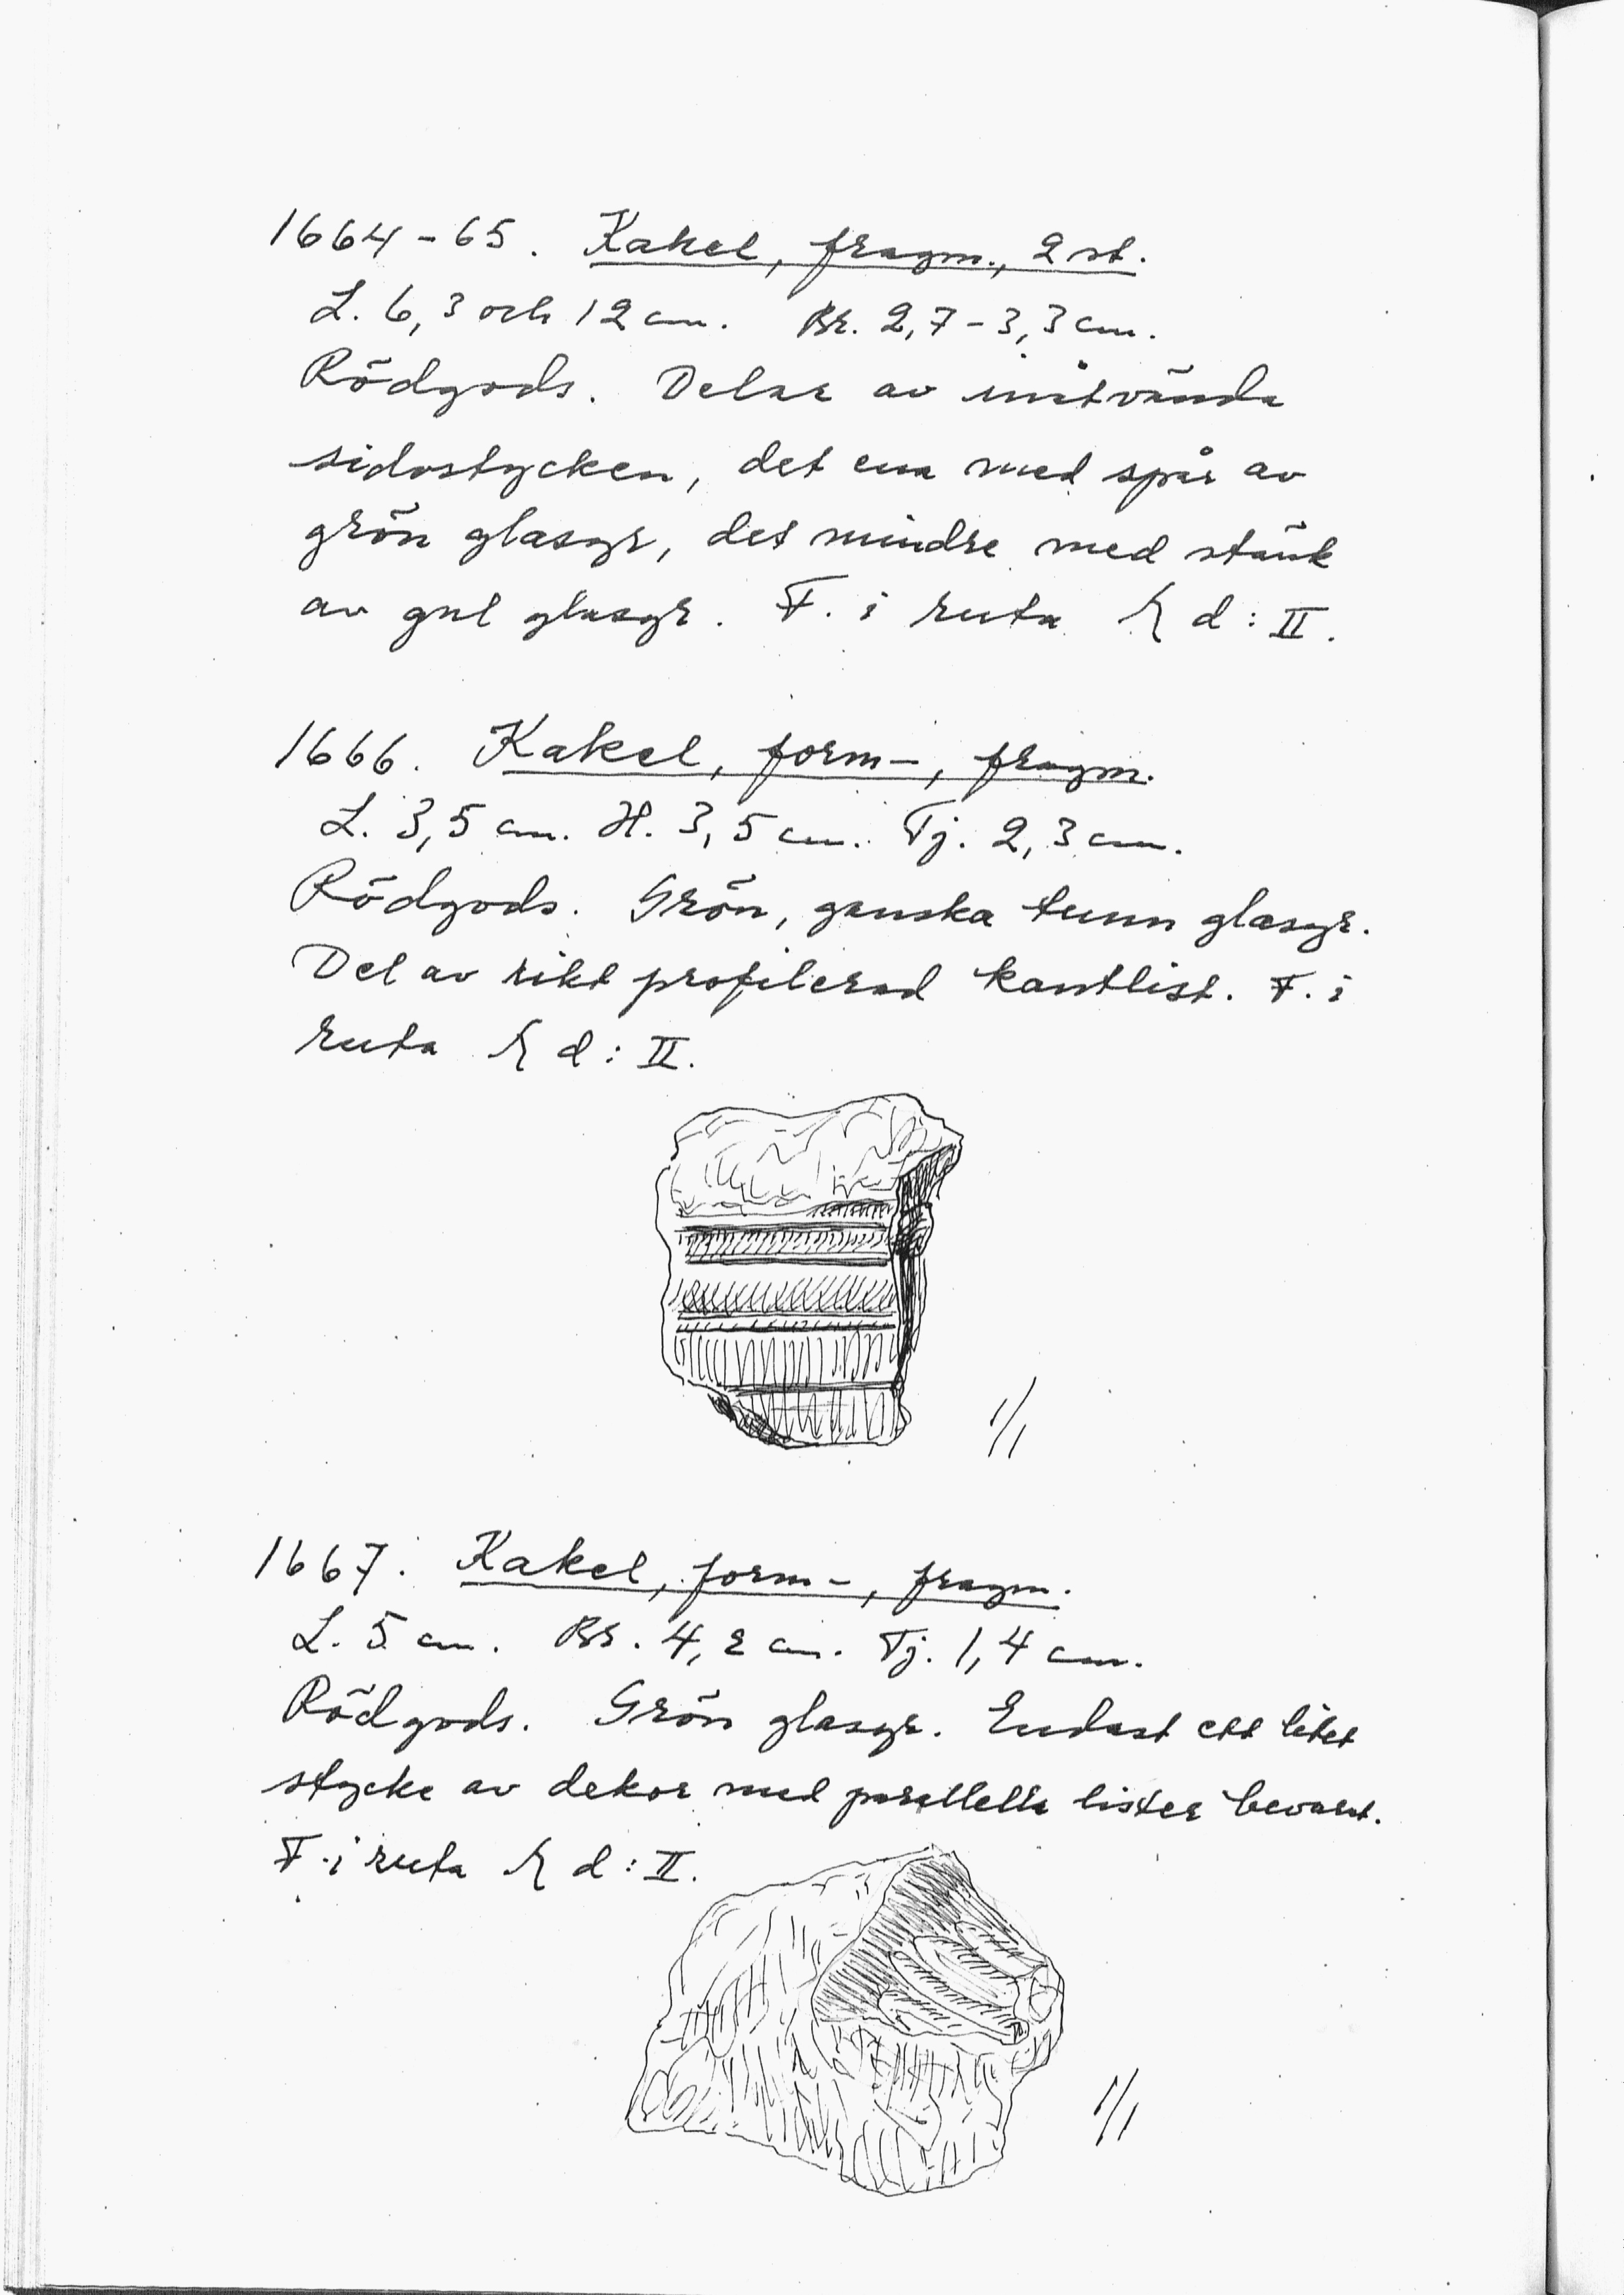 1664-65. Kakel, fragm., 2 st.
L. 6,3 och 12 cm. Br. 2,7-3,3 cm.
Rödgods. Delar av inåtvända
sidostycken, det ena med spår av
grön glasyr, det mindre med stänk
av gul glasyr. F. i ruta d: II.
1666. Kakel, form-, fragm.
L. 3,5 cm. H. 3,5 cm. Tj. 2,3 cm.
Rödgods. Grön, ganska tunn glasyr.
Del av rikt profilerad kantlist. F. i
ruta d: II.
1/1
1667. Kakel, form-, fragm.
L. 5 cm. Br. 4,2 cm. Tj. 1,4 cm.
Rödgods. Grön glasyr. Endast ett litet
stycke av dekor med parallella lister bevarat.
F. i ruta d: II.
1/1